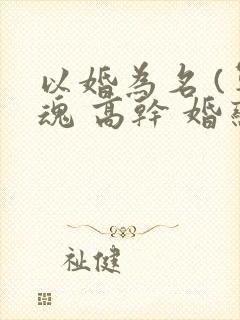 以婚為名(
魂 高幹 婚
祉健